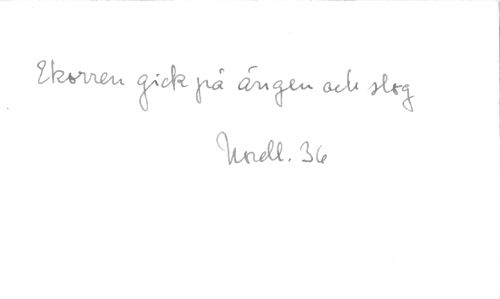 Ekorren gick på ängen och slog
Nordl. 36